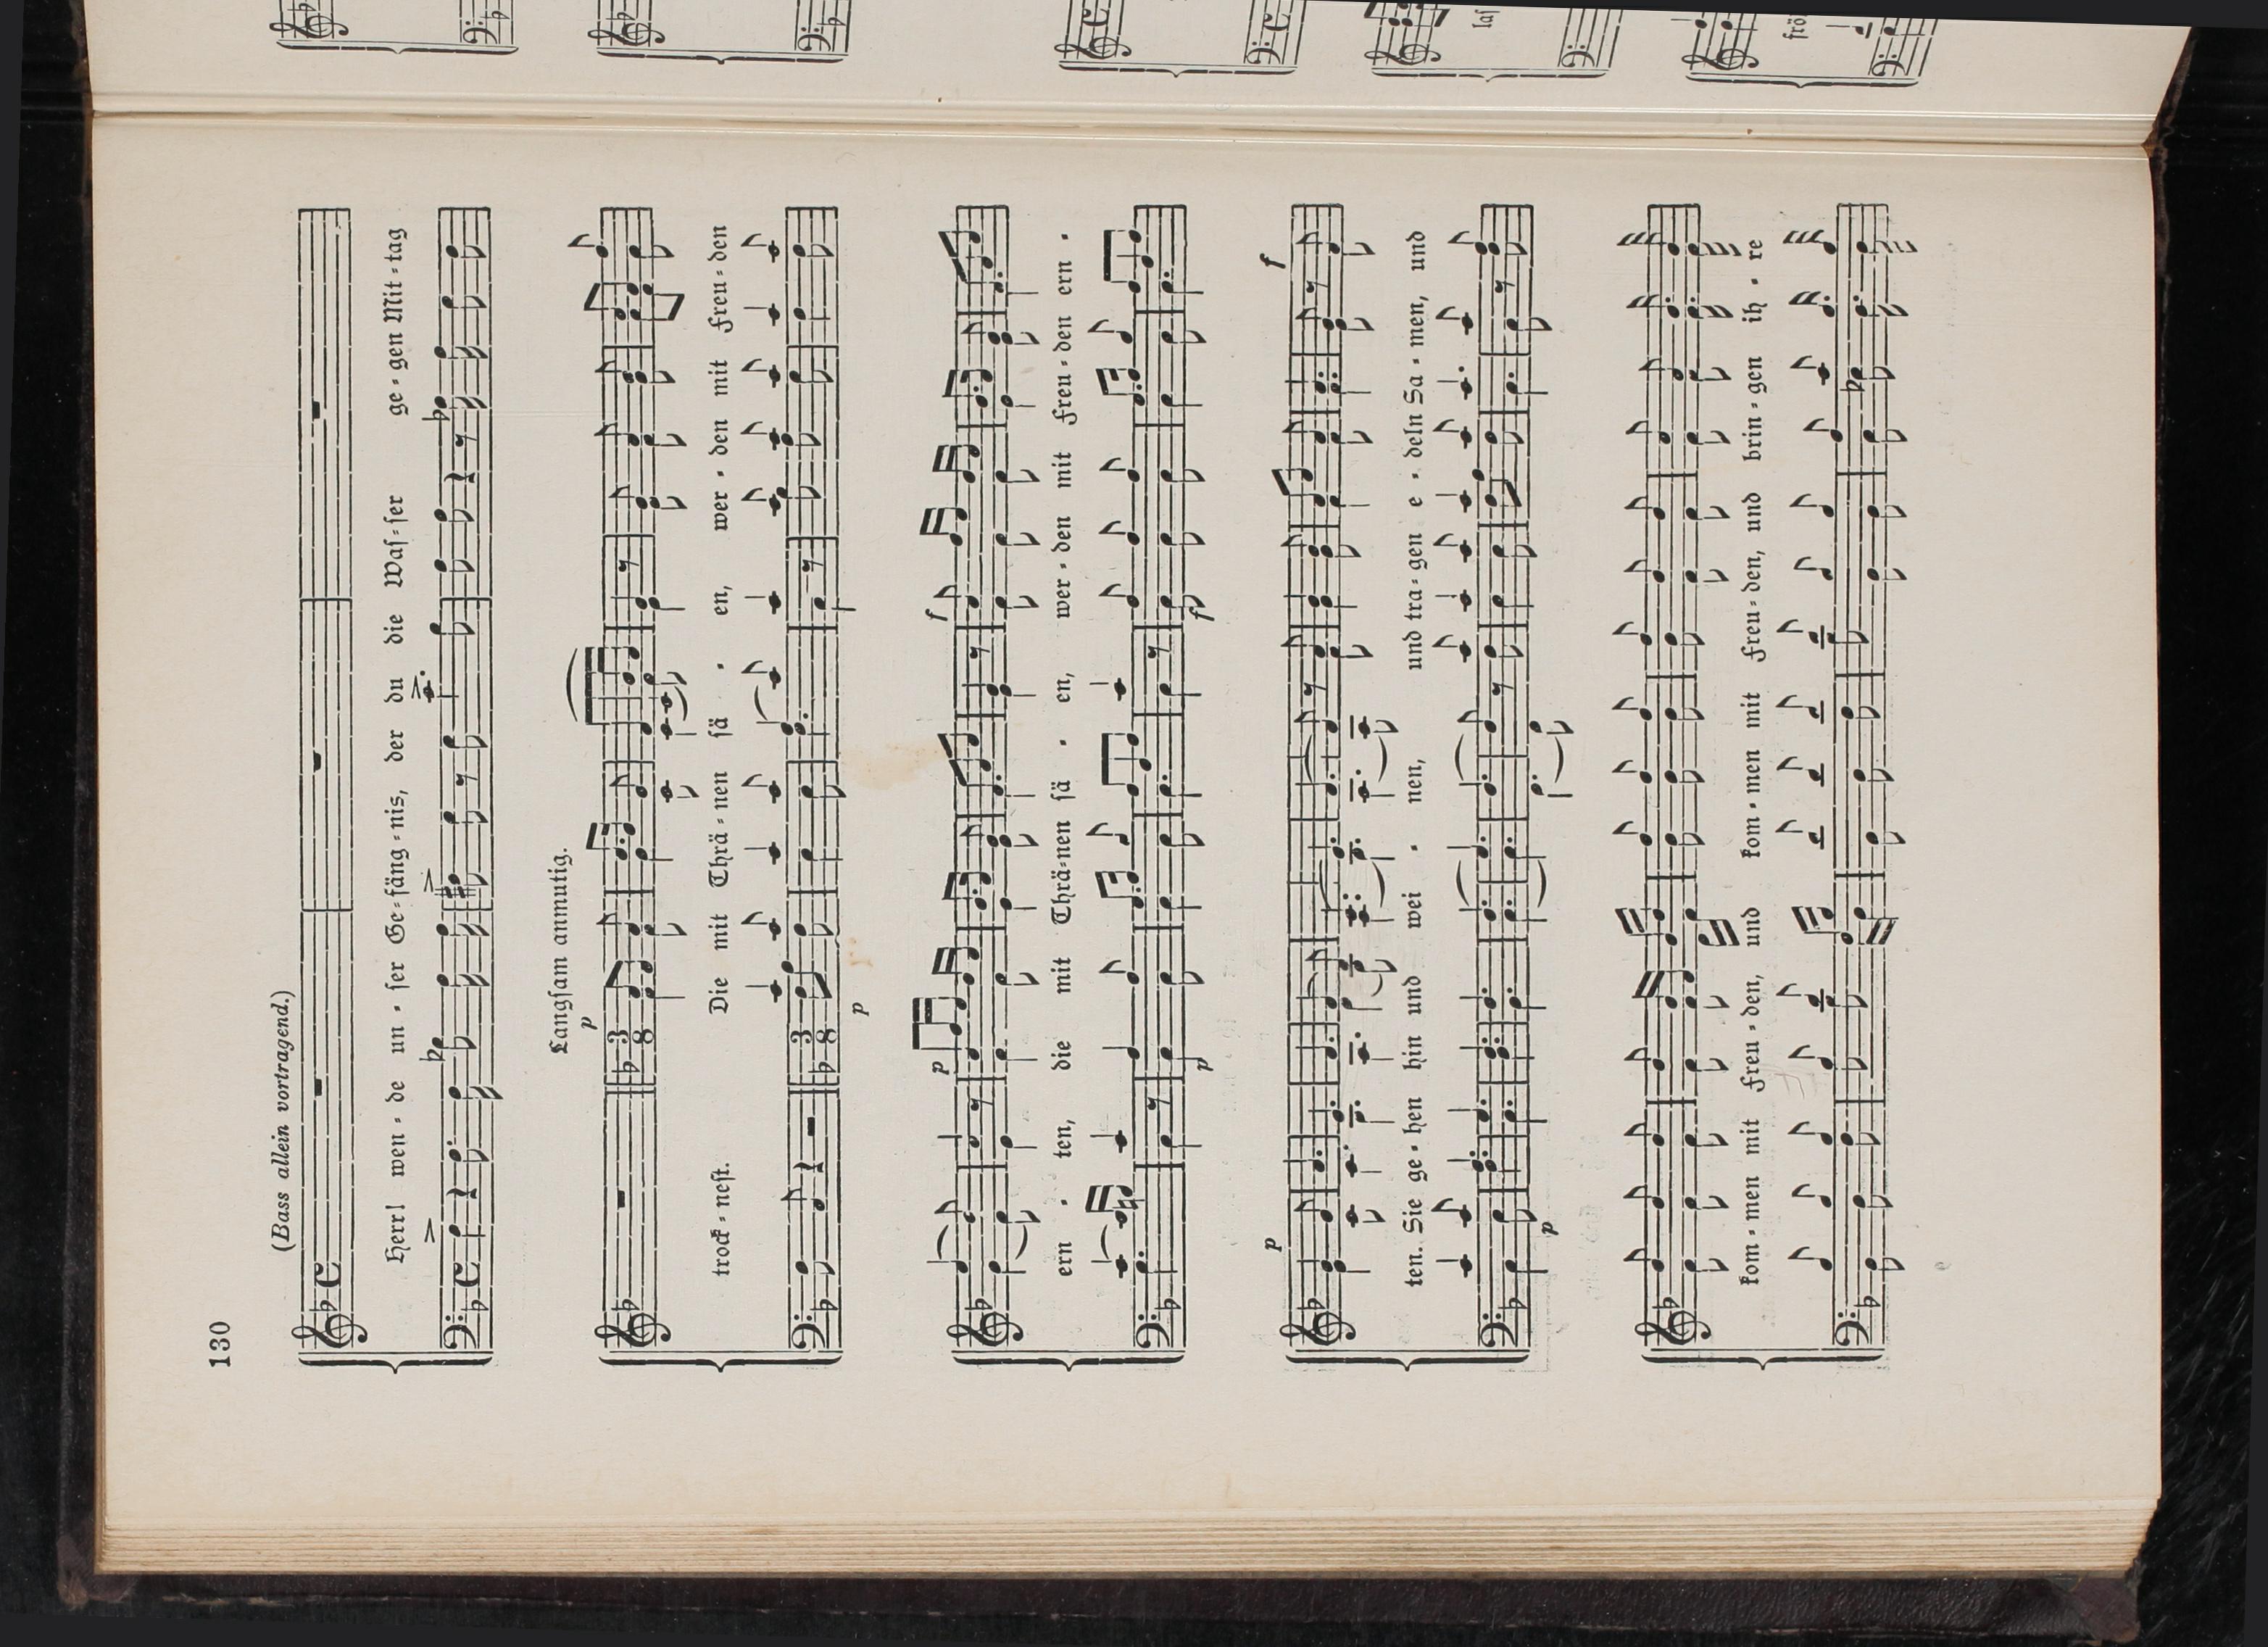 130
(Bass allein vortragend.)
Herr! wen - de un - ser Ge - fäng - nis, der du die Was - ser ge - gen Mit - tag
Langsam anmutig.
p
trock - nest. Die mit Thrä - nen sä - en, wer - den mit Freu - den
p
p f
ern - ten, die mit Thrä - nen sä - en, wer - den mit Freu - den ern -
p f
p f
ten. Sie ge - hen hin und wei - nen, und tra - gen e - deln Sa - men, und
p
kom - men mit Freu - den, und kom - men mit Freu - den, und brin - gen ih - re